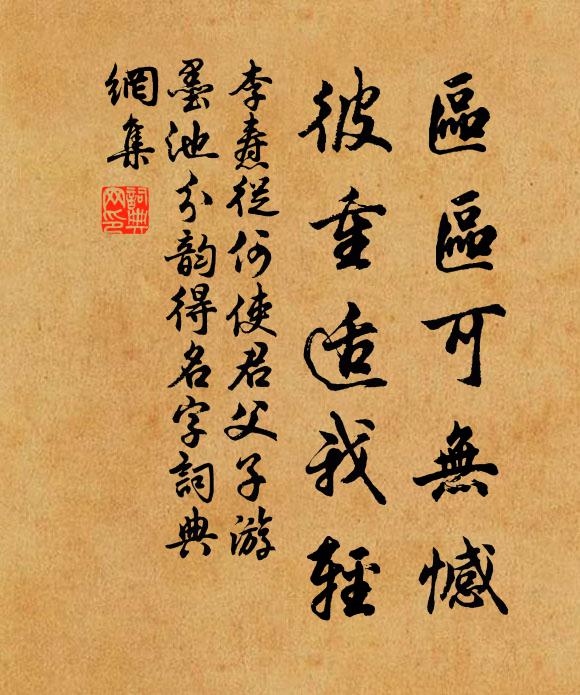 區區可無憾
彼重适我輕
李燾從何使君父子游
墨池分韵得名字詞典
網集
詞典
網印